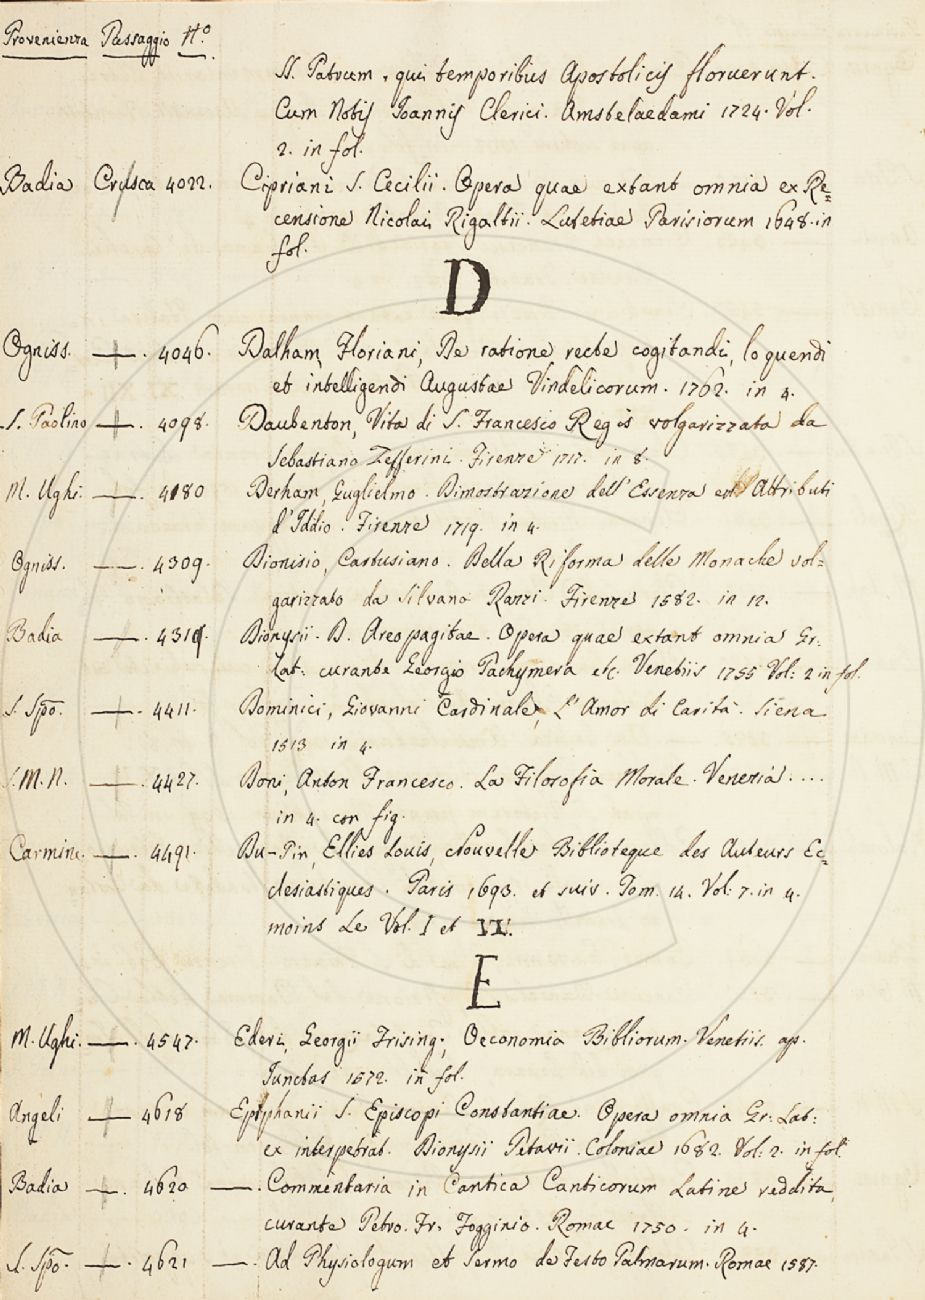 Provenienza Passaggio N.o
SS. Patrum, qui temporibus Apostolicis floruerunt.
Cum Notis Joannis Clerici. Amstelaedami 1724. Vol.
2. in fol.
Badia Crusca 4022. Cipriani S. Cecilii. Opera quae extant omnia ex Re=
censione Nicolai Rigaltii. Lutetiae Parisiorum 1648. in
fol.
D
Ogniss. — . 4046. Dalham, Floriani, De ratione recte cogitandi, loquendi
et intelligendi Augustae Vindelicorum. 1762. in 4.
S. Paolino — . 4098. Daubenton, Vita di S. Francesco Regis volgarizzata da
Sebastiano Zefferini. Firenze 1717. in 8.
M. Ughi. — . 4180 Derham, Guglielmo. Dimostrazione dell'Essenza ed Attributi
d'Iddio. Firenze 1719. in 4.
Ogniss. — . 4309. Dionisio, Cartusiano. Della Riforma delle Monache vol=
garizzato da Silvano Razzi. Firenze 1582. in 12.
Badia — . Dionysii. D. Areopagitae. Opera quae extant omnia Gr:
Lat: curante Georgio Pachymera etc. Venetiis 1755 Vol: 2 in fol.
S. Spo. — . 4411. Dominici, Giovanni Cardinale, L'Amor di Carità. Siena
1513 in 4.
S. M. N. — . 4427. Doni, Anton Francesco. La Filosofia Morale. Venezia ....
in 4. con fig.
Carmine. — . 4491. Du-Pin, Ellies Louis, Nouvelle Biblioteque des Auteurs Ec=
clesiastiques. Paris 1693. et suiv. Tom. 14. Vol: 7. in 4.
moins Le Vol. I et VI.
E
M. Ughi. — . 4547. Ederi, Georgii Frising., Oeconomia Bibliorum. Venetiis. ap.
Junctas 1572. in fol.
Angeli — 4618 Epiphanii S. Episcopi Constantiae. Opera omnia Gr: Lat:
ex interpetrat. Dionysii Petavii. Coloniae 1682. Vol: 2. in fol.
Badia — . 4620 — . Commentaria in Cantica Canticorum Latine reddita,
curante Petro. Fr. Fogginio. Romae 1750. in 4.
S. Spo. — . 4621 — . Ad Physiologum et Sermo de Festo Palmarum. Romae 1587.